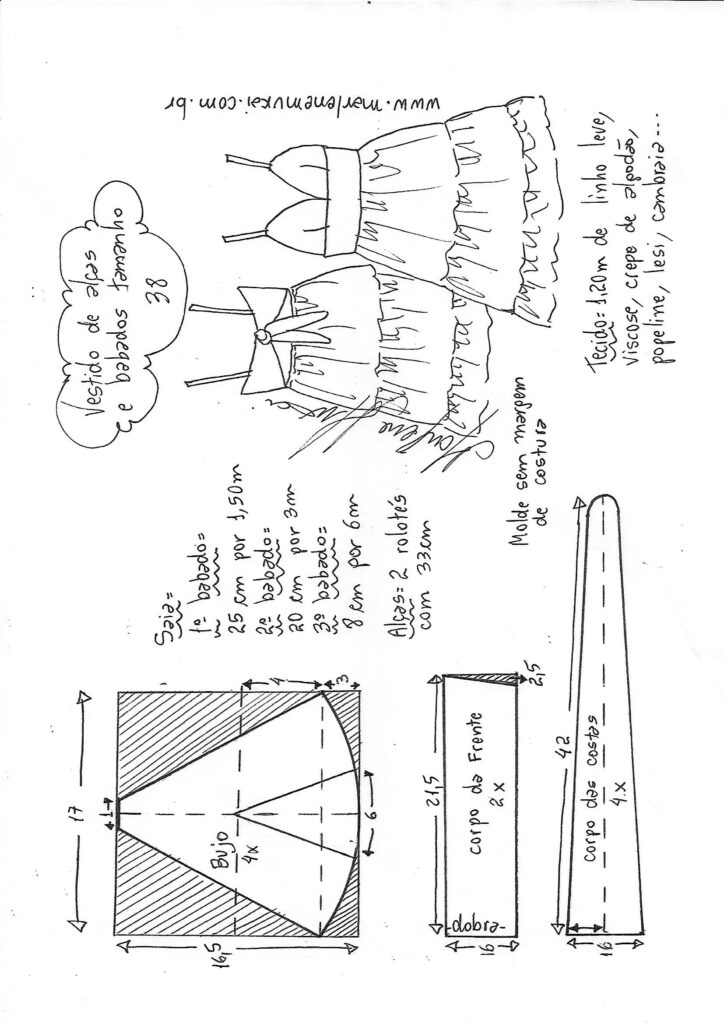 Vestido de alças
e babados tamanho
38
www.marlenemukai.com.br
Tecido=1,20m de linho leve,
viscose, crepe de algodão,
popeline, lesi, cambraia...
Saia=
1º babado=
25 cm por 1,50m
2º babado=
20 cm por 3m
3º babado=
8 cm por 6m
Alças=2 rolotés
com 33cm
Molde sem margem
de costura
17
1
4
3
6
16,5
Bujo
4x
21,5
2,5
corpo da Frente
2x
-dobra-
16
42
corpo das costas
4x
16